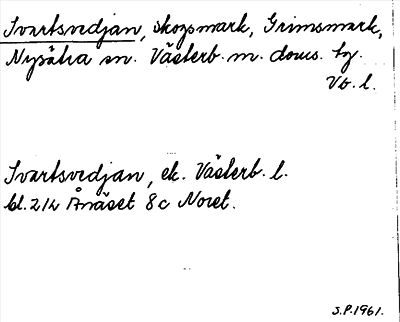 Svartsvedjan, skogsmark, Grimsmark,
Nysätra sn. Västerb. m. doms. tg.
Vb. l.
Svartsvedjan, ek. Västerb. l.
bl. 214 Ånäset 8c Noret.
S.P. 1961.